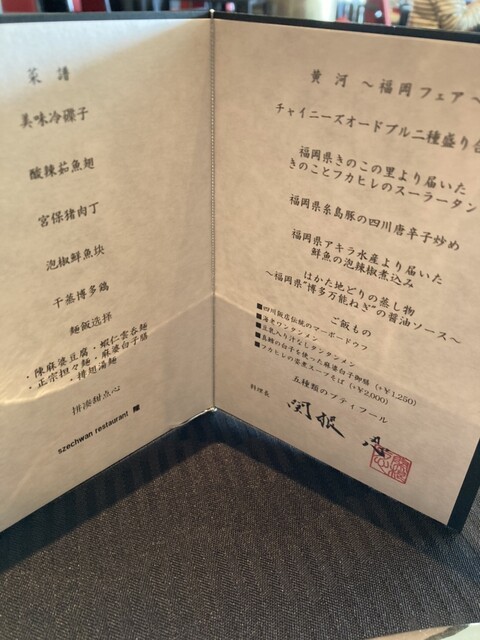 菜譜
美味冷碟子
酸辣茹魚翅
宮保猪肉丁
泡椒鮮魚块
干蒸博多鶏
麺飯选择
・陳麻婆豆腐・蝦仁雲呑麺
・正宗担々麺・麻婆白子膳
・排翅湯麺
拼湊甜点心
szechwan restaurant 陳
黄河 〜福岡フェア〜
チャイニーズオードブル二種盛り合
福岡県きのこの里より届いた
きのことフカヒレのスーラータン
福岡県糸島豚の四川唐辛子炒め
福岡県アキラ水産より届いた
鮮魚の泡辣椒煮込み
はかた地どりの蒸し物
〜福岡県"博多万能ねぎ"の醤油ソース〜
ご飯もの
■四川飯店伝統のマーボードウフ
■海老ワンタンメン
■豆乳入り汁なしタンタンメン
■真鱈の白子を使った麻婆白子御膳（+¥1,250）
■フカヒレの姿煮スープそば（+¥2,000）
五種類のプティフール
料理長
関根